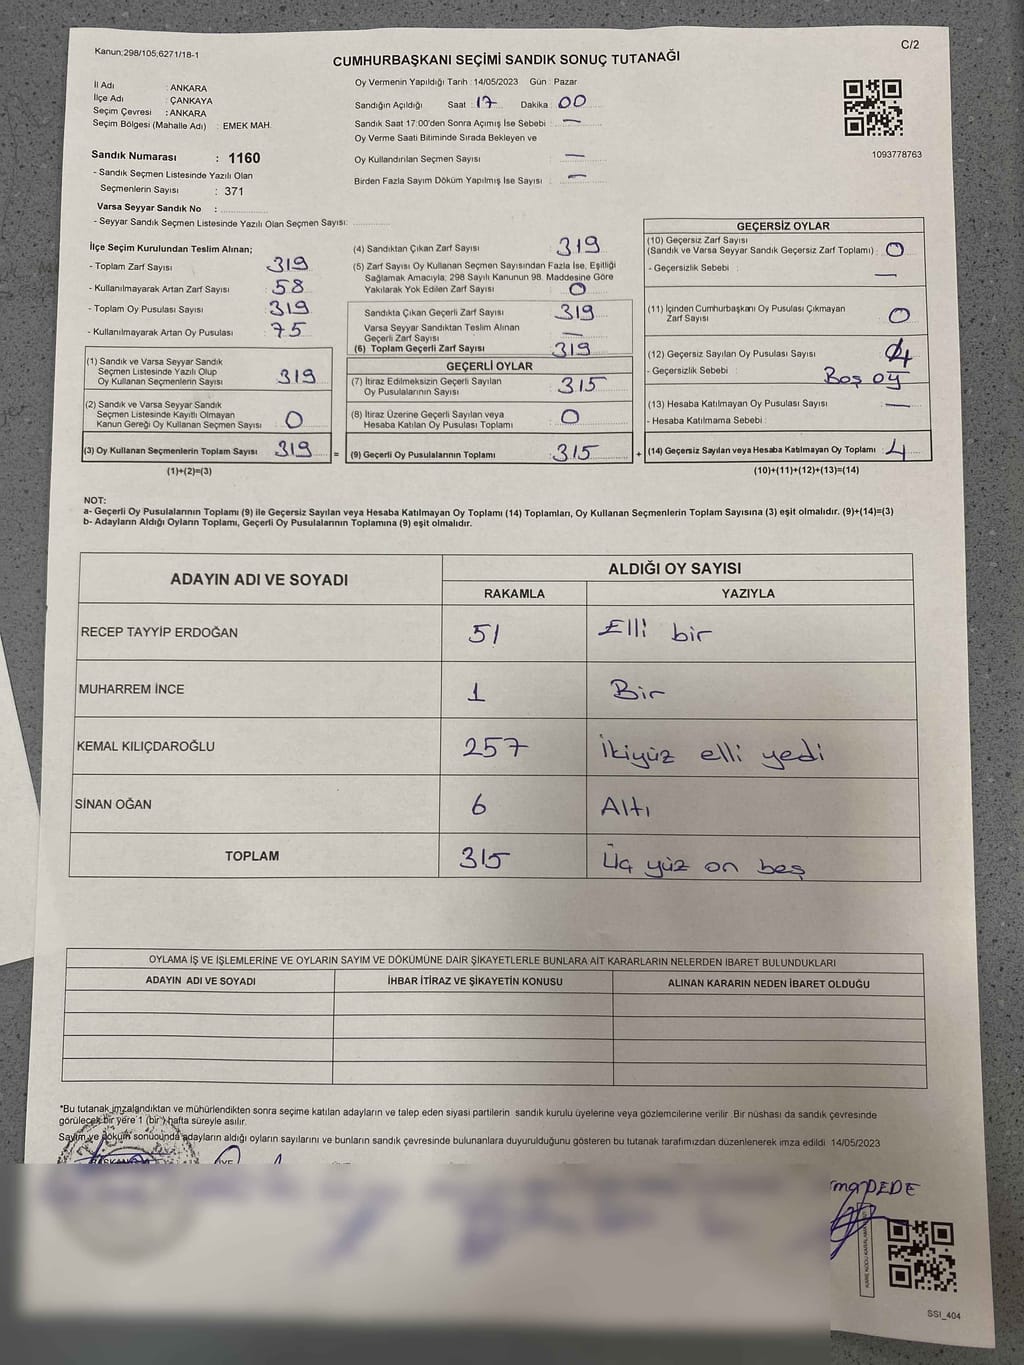 Kanun:298/105;6271/18-1
C/2
CUMHURBAŞKANI SEÇİMİ SANDIK SONUÇ TUTANAĞI
İl Adı : ANKARA
İlçe Adı : ÇANKAYA
Seçim Çevresi : ANKARA
Seçim Bölgesi (Mahalle Adı) : EMEK MAH.
Sandık Numarası : 1160
- Sandık Seçmen Listesinde Yazılı Olan
Seçmenlerin Sayısı : 371
Varsa Seyyar Sandık No :
- Seyyar Sandık Seçmen Listesinde Yazılı Olan Seçmen Sayısı:
Oy Vermenin Yapıldığı Tarih : 14/05/2023 Gün : Pazar
Sandığın Açıldığı Saat : 17 Dakika : 00
Sandık Saat 17:00'den Sonra Açımış İse Sebebi : —
Oy Verme Saati Bitiminde Sırada Bekleyen ve
Oy Kullandırılan Seçmen Sayısı —
Birden Fazla Sayım Döküm Yapılmış İse Sayısı : —
1093778763
İlçe Seçim Kurulundan Teslim Alınan;
- Toplam Zarf Sayısı 319
- Kullanılmayarak Artan Zarf Sayısı 58
- Toplam Oy Pusulası Sayısı 319
- Kullanılmayarak Artan Oy Pusulası 75
(1) Sandık ve Varsa Seyyar Sandık
Seçmen Listesinde Yazılı Olup
Oy Kullanan Seçmenlerin Sayısı 319
(2) Sandık ve Varsa Seyyar Sandık
Seçmen Listesinde Kayıtlı Olmayan
Kanun Gereği Oy Kullanan Seçmen Sayısı 0
(3) Oy Kullanan Seçmenlerin Toplam Sayısı 319 =
(1)+(2)=(3)
(4) Sandıktan Çıkan Zarf Sayısı 319
(5) Zarf Sayısı Oy Kullanan Seçmen Sayısından Fazla İse, Eşitliği
Sağlamak Amacıyla; 298 Sayılı Kanunun 98. Maddesine Göre
Yakılarak Yok Edilen Zarf Sayısı 0
Sandıkta Çıkan Geçerli Zarf Sayısı 319
Varsa Seyyar Sandıktan Teslim Alınan
Geçerli Zarf Sayısı —
(6) Toplam Geçerli Zarf Sayısı 319
GEÇERLİ OYLAR
(7) İtiraz Edilmeksizin Geçerli Sayılan
Oy Pusulalarının Sayısı 315
(8) İtiraz Üzerine Geçerli Sayılan veya
Hesaba Katılan Oy Pusulası Toplamı 0
(9) Geçerli Oy Pusulalarının Toplamı 315 +
GEÇERSİZ OYLAR
(10) Geçersiz Zarf Sayısı
(Sandık ve Varsa Seyyar Sandık Geçersiz Zarf Toplamı) : 0
- Geçersizlik Sebebi : —
(11) İçinden Cumhurbaşkanı Oy Pusulası Çıkmayan
Zarf Sayısı 0
(12) Geçersiz Sayılan Oy Pusulası Sayısı 4
- Geçersizlik Sebebi : Boş oy
(13) Hesaba Katılmayan Oy Pusulası Sayısı —
- Hesaba Katılmama Sebebi :
(14) Geçersiz Sayılan veya Hesaba Katılmayan Oy Toplamı 4
(10)+(11)+(12)+(13)=(14)
NOT:
a- Geçerli Oy Pusulalarının Toplamı (9) ile Geçersiz Sayılan veya Hesaba Katılmayan Oy Toplamı (14) Toplamları, Oy Kullanan Seçmenlerin Toplam Sayısına (3) eşit olmalıdır. (9)+(14)=(3)
b- Adayların Aldığı Oyların Toplamı, Geçerli Oy Pusulalarının Toplamına (9) eşit olmalıdır.
ADAYIN ADI VE SOYADI
ALDIĞI OY SAYISI
RAKAMLA YAZIYLA
RECEP TAYYİP ERDOĞAN 51 Elli bir
MUHARREM İNCE 1 Bir
KEMAL KILIÇDAROĞLU 257 İkiyüz elli yedi
SİNAN OĞAN 6 Altı
TOPLAM 315 Üç yüz on beş
OYLAMA İŞ VE İŞLEMLERİNE VE OYLARIN SAYIM VE DÖKÜMÜNE DAİR ŞİKAYETLERLE BUNLARA AİT KARARLARIN NELERDEN İBARET BULUNDUKLARI
ADAYIN ADI VE SOYADI İHBAR İTİRAZ VE ŞİKAYETİN KONUSU ALINAN KARARIN NEDEN İBARET OLDUĞU
*Bu tutanak imzalandıktan ve mühürlendikten sonra seçime katılan adayların ve talep eden siyasi partilerin sandık kurulu üyelerine veya gözlemcilerine verilir. Bir nüshası da sandık çevresinde
görülecek bir yere 1 (bir) hafta süreyle asılır.
Sayım ve döküm sonucunda adayların aldığı oyların sayılarını ve bunların sandık çevresinde bulunanlara duyurulduğunu gösteren bu tutanak tarafımızdan düzenlenerek imza edildi 14/05/2023
BAŞKAN ÜYE
PEDE
SSİ_404